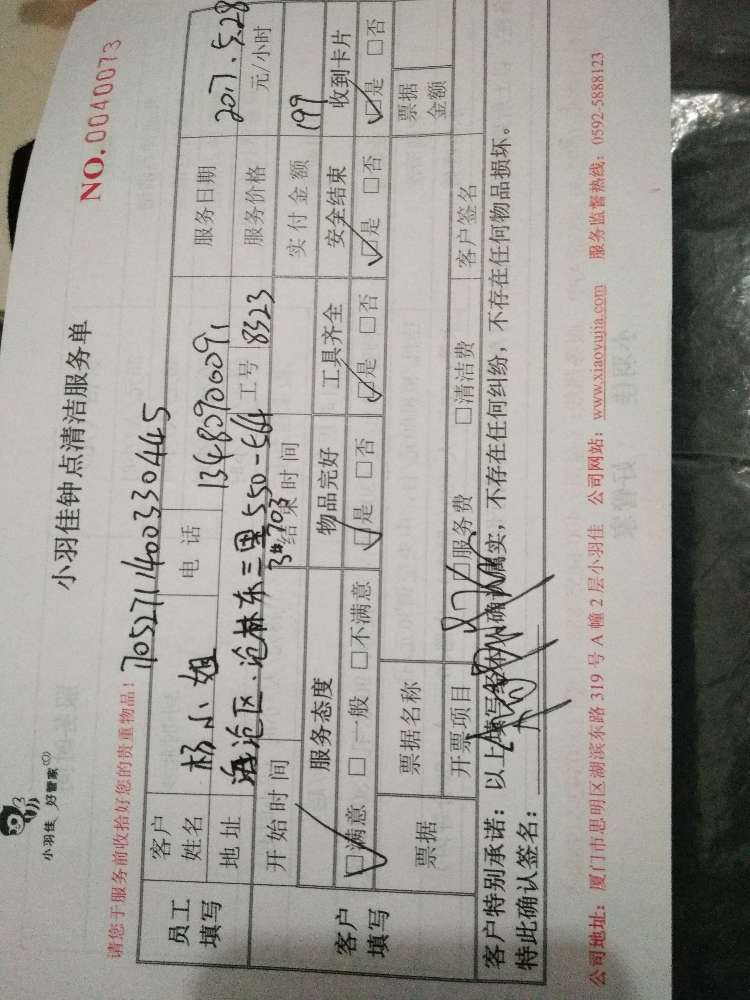 小羽佳 好管家
小羽佳钟点清洁服务单
NO.0040073
请您于服务前收拾好您的贵重物品!
705271140033044445
员工填写
客户姓名 杨小姐 电话 13480900091 服务日期 2017.5.28
地址 海沧区·沧林东三里550-564 3#703 工号 8323 服务价格 元/小时
开始时间 结束时间 实付金额 199
客户填写
服务态度 物品完好 工具齐全 安全结束 收到卡片
☑满意 □一般 □不满意 ☑是 □否 ☑是 □否 ☑是 □否 ☑是 □否
票据 票据名称 票据金额
开票项目 □服务费 □清洁费 客户签名
客户特别承诺:以上填写经本人确认属实,不存在任何纠纷,不存在任何物品损坏。
特此确认签名:
公司地址:厦门市思明区湖滨东路 319 号 A 幢 2 层小羽佳 公司网站:www.xiaoyujia.com 服务监督热线:0592-5888123